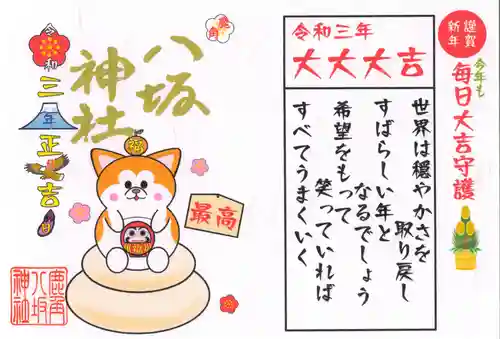 謹賀
新年
今年も
毎日大吉守護
令和三年
大大大吉
世界は穏やかさを
取り戻し
すばらしい年と
なるでしょう
希望をもって
笑っていれば
すべてうまくいく
八坂
神社
令和
三年正
吉日
最高
鹿角
八坂
神社